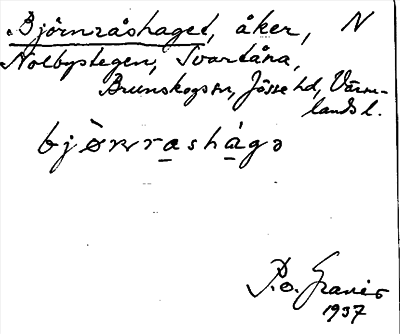 Björnråshaget, åker, N
Nolbystegen, Svartåna,
Brunskogs sn, Jösse hd, Värm-
lands l.
bjò̱rnrashágə
P.O. Granér
1937